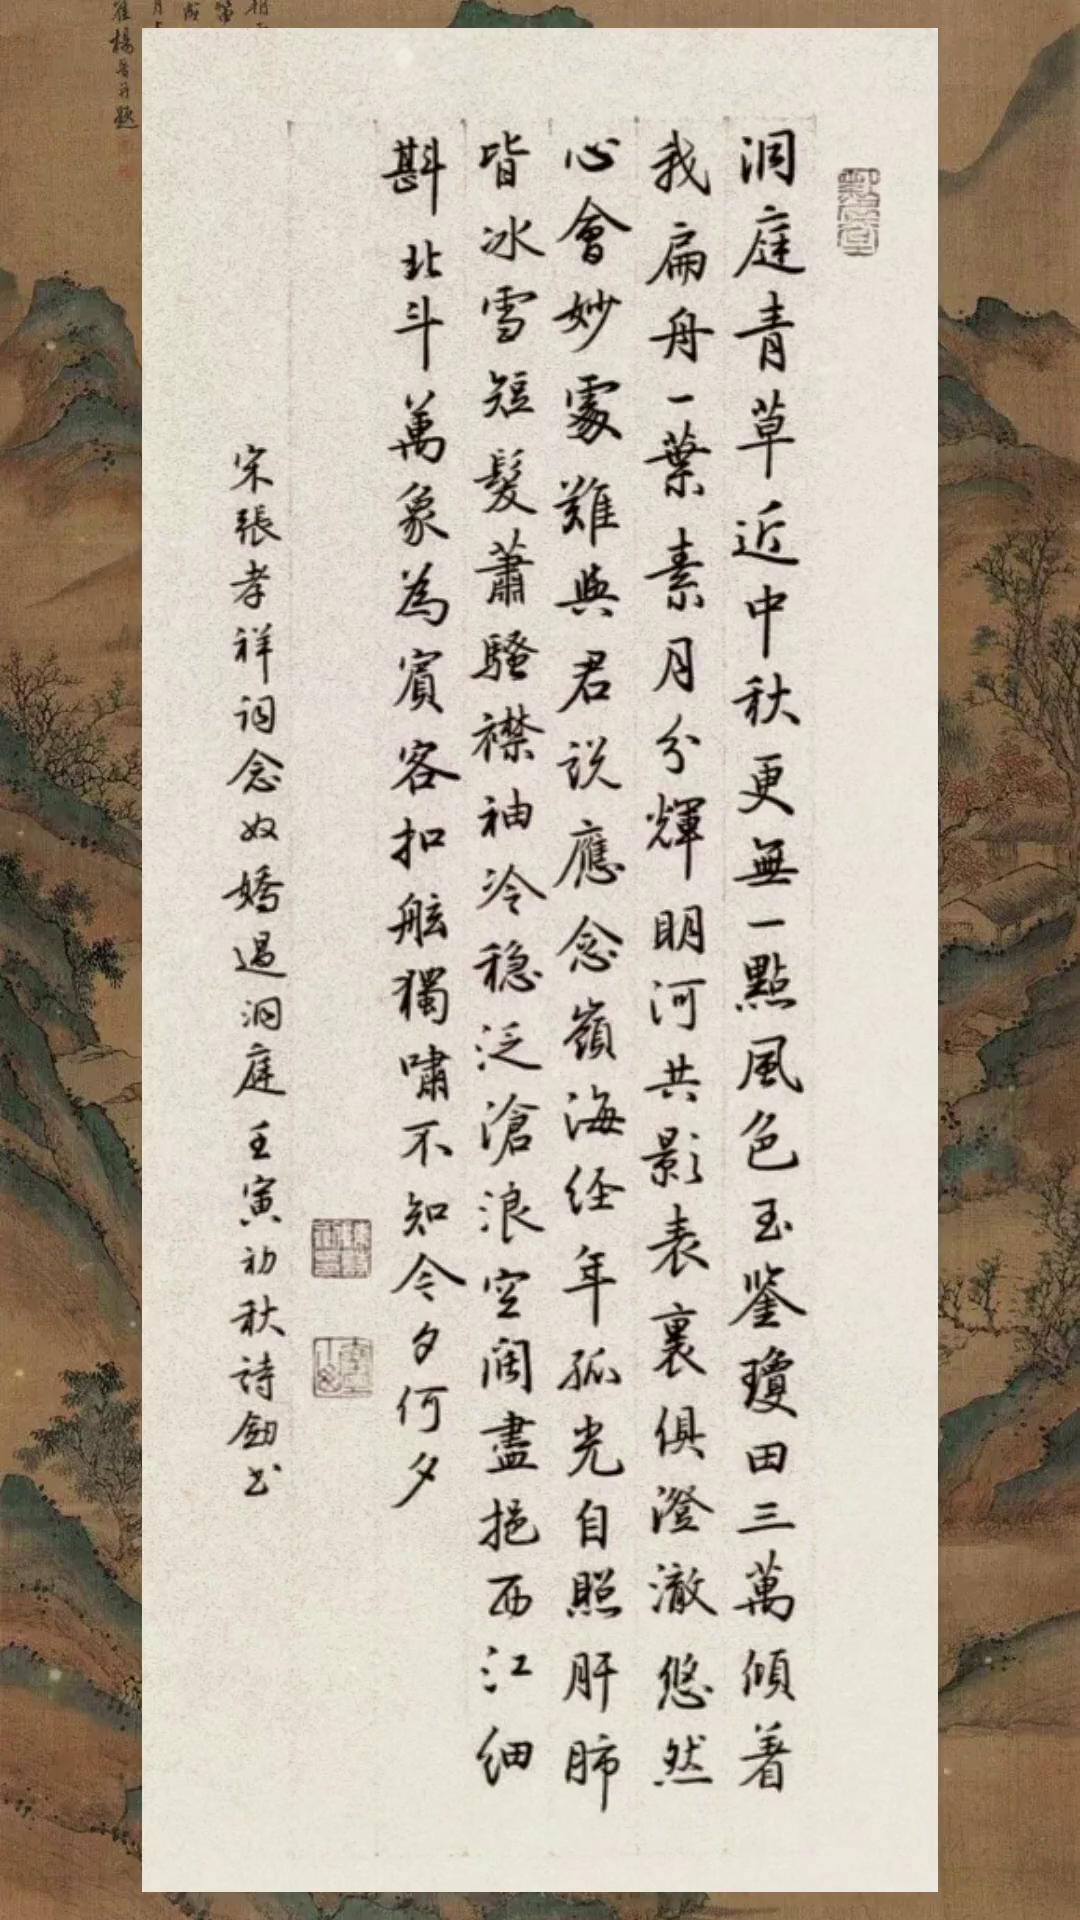 洞庭青草近中秋更無一點風色玉鉴瓊田三萬傾着
我扁舟一葉素月分輝明河共影表裏俱澄澈悠然
心會妙處難與君説應念嶺海经年孤光自照肝肺
皆冰雪短髮蕭騷襟袖冷稳泛滄浪空阔盡挹西江细
斟北斗萬象為賓客扣舷獨嘯不知今夕何夕
宋張孝祥词念奴嬌過洞庭壬寅初秋詩劍书